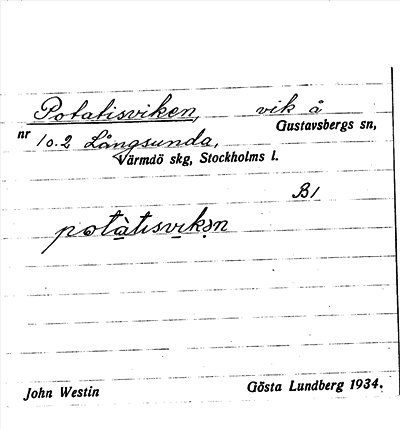 Potatisviken, vik å
Gustavsbergs sn,
nr 10.2 Långsunda,
Värmdö skg, Stockholms l.
B1
potàtisvikən
John Westin Gösta Lundberg 1934.